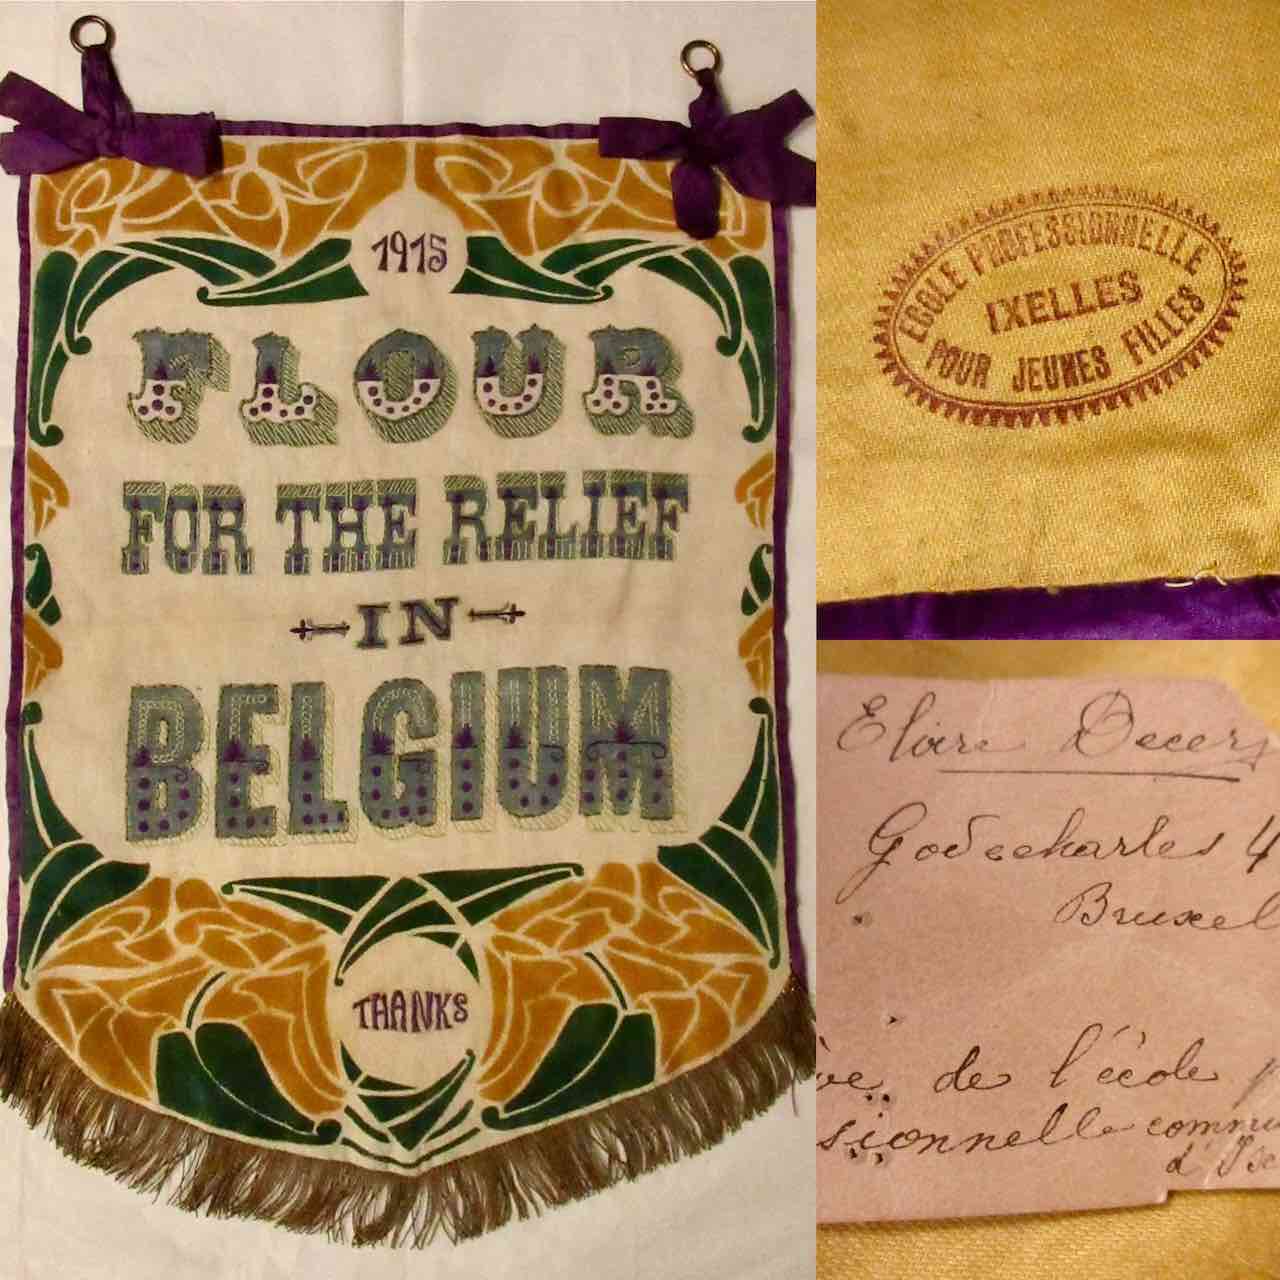 1915
FLOUR
FOR THE RELIEF
IN
BELGIUM
THANKS
ECOLE PROFESSIONNELLE
IXELLES
POUR JEUNES FILLES
Eloire Decers
Godecharles 4
Bruxel
ve de l'école
sionnelle commu
d'Ixe